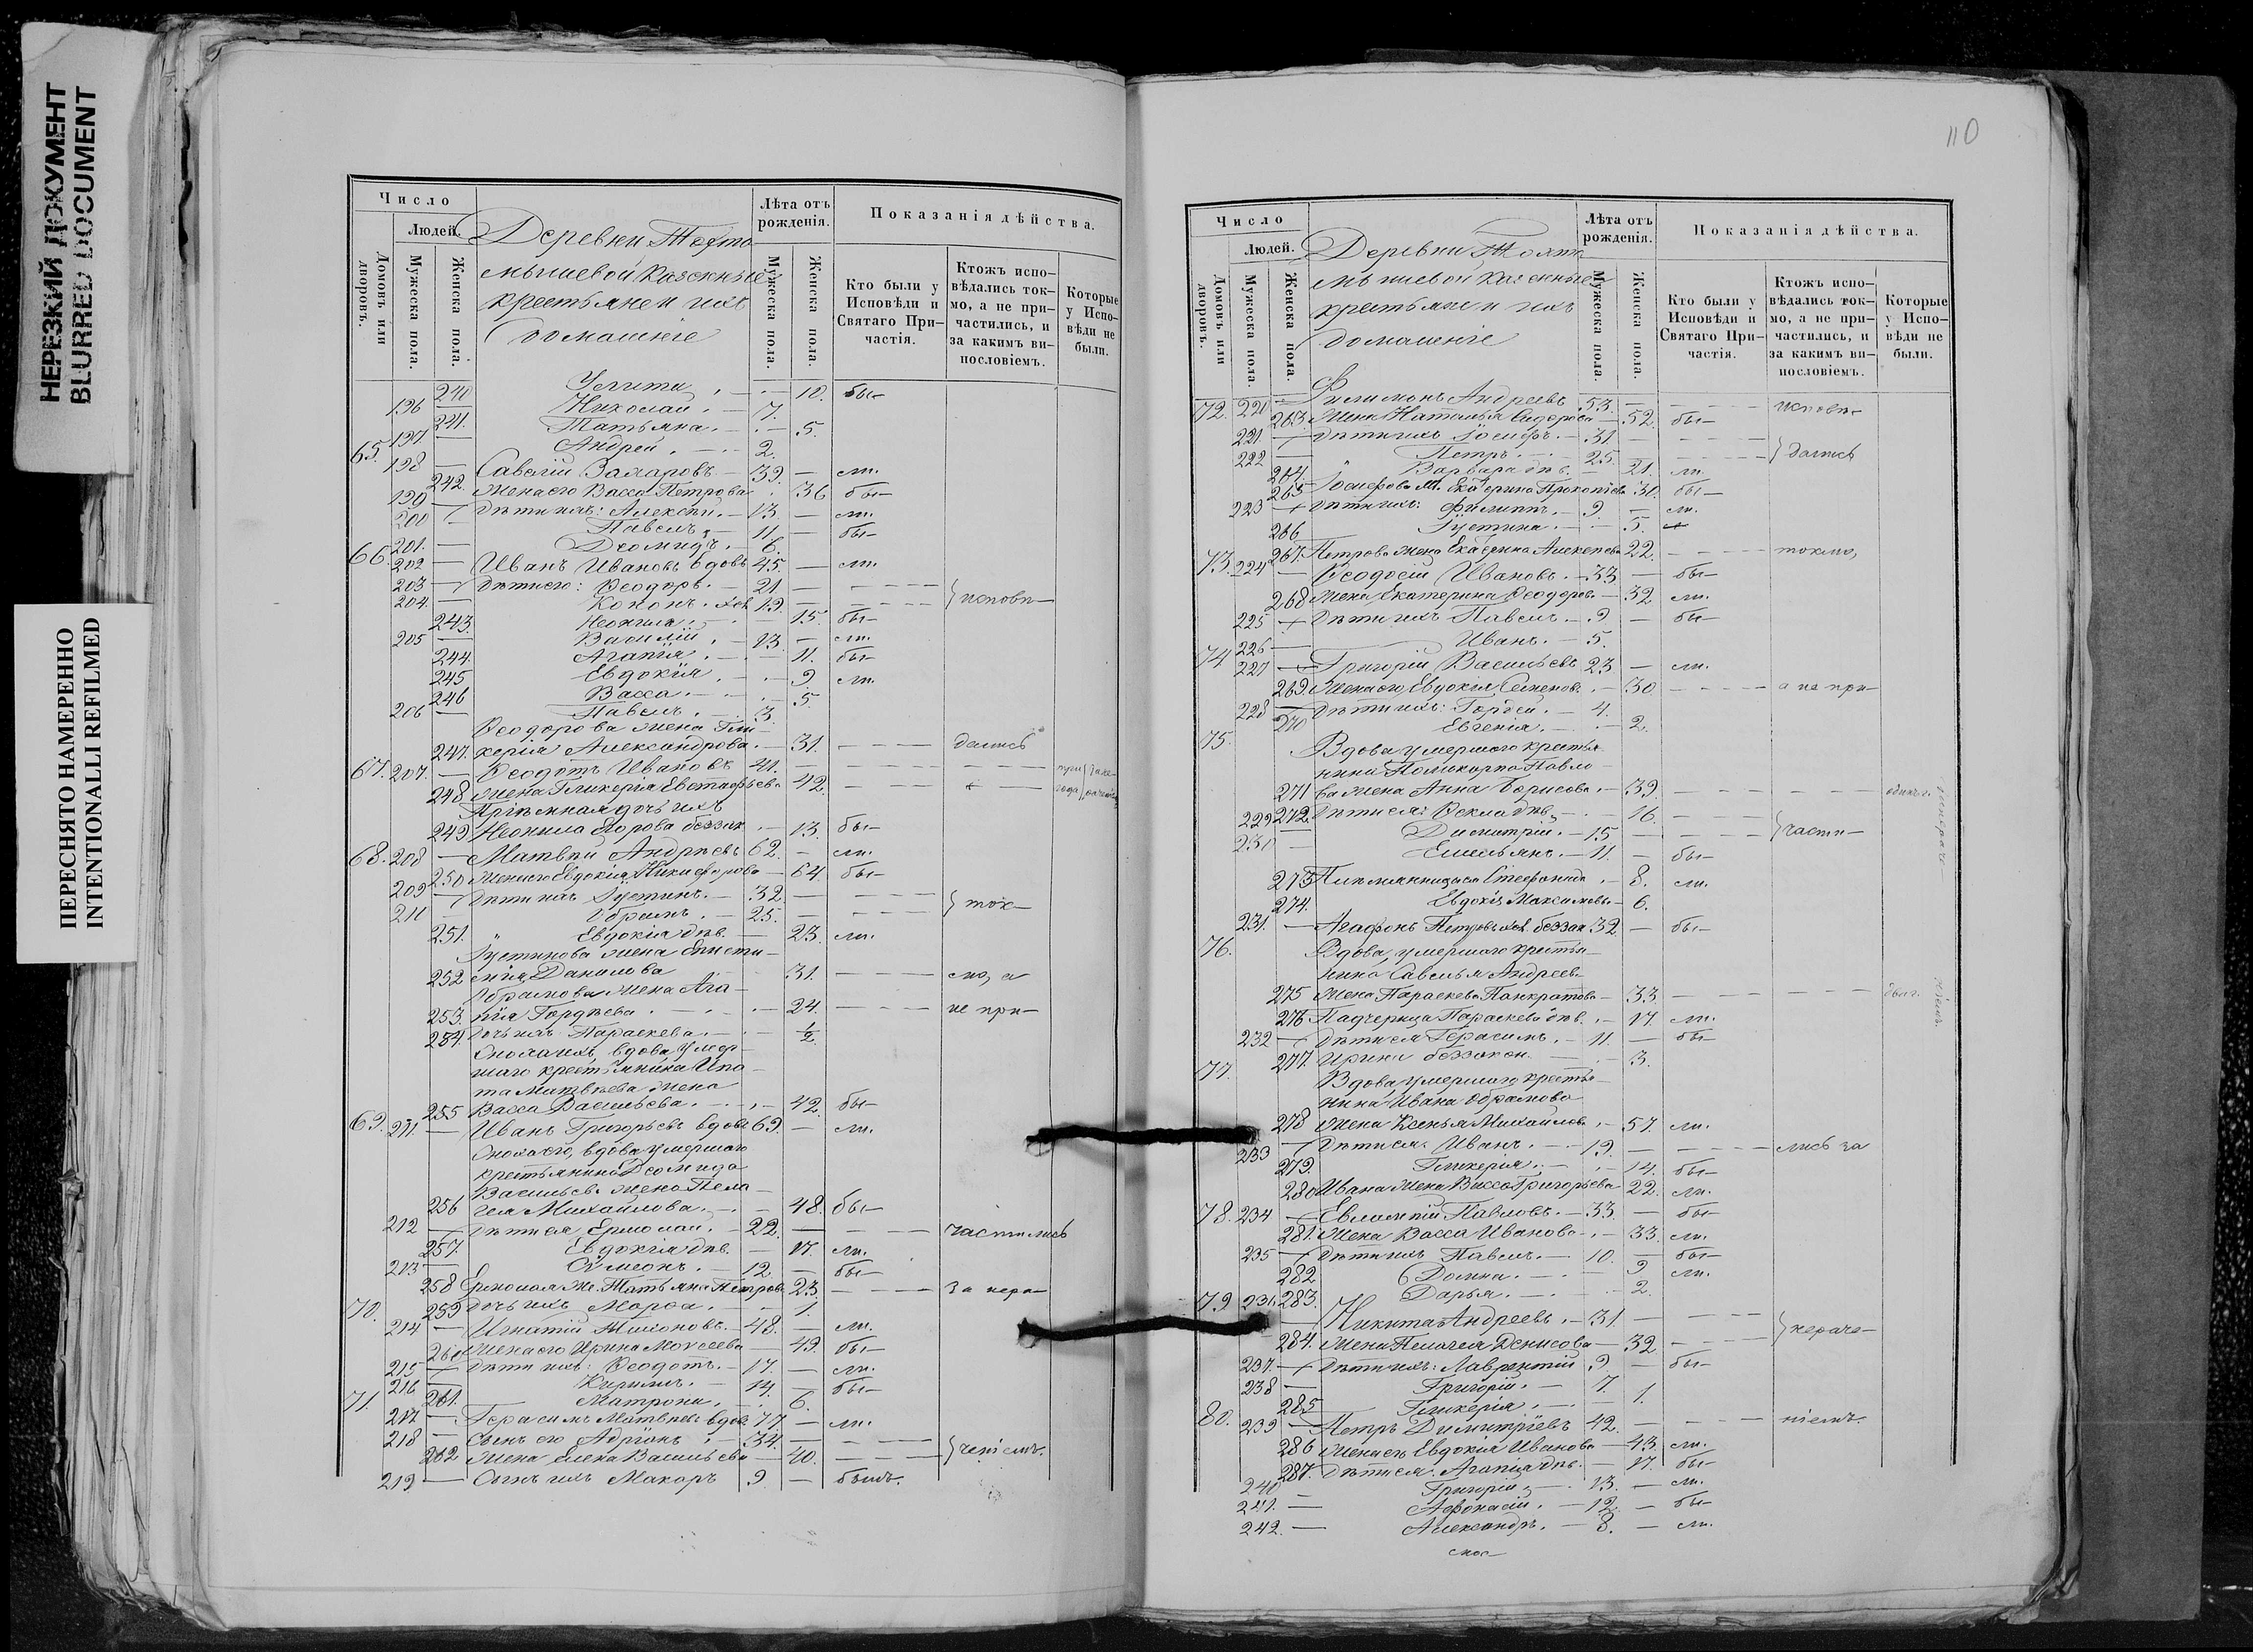 НЕРЕЗКИЙ ДОКУМЕНТ
BLURRED DOCUMENT
ПЕРЕСНЯТО НАМЕРЕННО
INTENTIONALLI REFILMED
Число
Людей.
Домовъ или дворовъ.
Мужеска пола.
Женска пола.
Деревни
казенные
крестьяне и ихъ
домашніе
Лѣта отъ рожденія.
Мужеска пола.
Женска пола.
Показанія дѣйства.
Кто были у Исповѣди и Святаго При-частія.
Ктожъ испо-вѣдались ток-мо, а не при-частились, и за какимъ ви-нословіемъ.
Которые у Испо-вѣди не были.
240 Улита 10. бы-
196 Николай. 7.
241. Татьяна. 5.
197 Андрей. 2.
65. 198 Савелій Захаровъ 39. ли.
242. Жена его Васса Петрова 36 бы-
199 Дѣти ихъ: Алексѣй. 13 ли.
200 Павелъ 11 бы-
201. Деомидъ. 6.
66. 202 Иванъ Ивановъ вдовъ 45. ли.
203 Дѣти его: Ѳеодоръ. 21
204. Кононъ. 19. исповѣ-
243. Неонила. 15. бы-
205 Василій. 13. ли.
244. Агапія. 11. бы-
245 Евдокія. 9 ли.
246 Васса. 5.
206 Павелъ. 3.
Ѳеодорова жена Гли-
247. керія Александрова. 31. дались
67. 207. Ѳеодотъ Ивановъ 41.
248 Жена Гликерія Евстафьева 42.
Пріемная дочь ихъ
249 Неонила Егорова беззак 13. бы-
68. 208 Матвѣй Андреевъ 62. ли.
250 Жена его Евдокія Никифорова 64 бы-
209 Дѣти ихъ Іустинъ. 32.
210 25. ток-
251. Евдокія дѣв. 23. ли.
Іустинова жена Еписти-
252 мія Данилова 31 мо, а
жена Ага-
253. пія Гордѣева 24. не при-
254. Дочь ихъ Параскева. ½.
Сноха ихъ, вдова умер-
шаго крестьянина Ипа-
та Матвѣева жена
255 Васса Васильева. 42. бы-
69. 211. Иванъ Григорьевъ вдовъ 69. ли.
Сноха его, вдова умершаго
крестьянина Деомида
Васильева жена Пела-
256 гея Михайлова. 48. бы-
212 Дѣти ея Ермолай. 22. частились
257. Евдокія дѣв. 17. ли.
213 Сѵмеонъ. 12. бы-
258 Ермолая ж. Татьяна Петрова 23. за нера-
259 Дочь ихъ Марѳа. 1.
70. 214 Игнатій Тихоновъ. 48. ли.
260 Жена его Ирина Моисеева 49. бы-
215 Дѣти ихъ: Ѳеодотъ. 17 ли.
216 Кириллъ. 14. бы-
261. Матрона. 6.
71. 217 Герасимъ Матвѣевъ вдов. 77 ли.
218 Сынъ его Адріанъ 34.
262 Жена Елена Васильева 40. ченіемъ.
219 Сынъ ихъ Макаръ 9 былъ.
110
Число
Людей.
Домовъ или дворовъ.
Мужеска пола.
Женска пола.
Деревни
казенные
крестьяне и ихъ
домашніе
Лѣта отъ рожденія.
Мужеска пола.
Женска пола.
Показанія дѣйства.
Кто были у Исповѣди и Святаго При-частія.
Ктожъ испо-вѣдались ток-мо, а не при-частились, и за какимъ ви-нословіемъ.
Которые у Испо-вѣди не были.
72. 220 Филимонъ Андреевъ 53. исповѣ-
263. Жена Наталья Сидорова 52. бы-
221 Дѣти ихъ Іосифъ. 31.
222 Петръ. 25. дались
264. Варвара дѣв. 21. ли.
265 Іосифова ж. Екатерина Прокопіева 31. бы-
223 Дѣти ихъ: Филиппъ. 9 ли.
266 Іустина. 5.
267. Петрова жена Екатерина Алексѣева 22. токмо,
73. 224 Ѳеодосій Ивановъ. 33. бы-
268 Жена Екатерина Ѳеодорова 32 ли.
225 Дѣти ихъ Павелъ. 9 бы-
226 Иванъ. 5.
74 227 Григорій Васильевъ 23. ли.
269. Жена его Евдокія Семенова. 30 а не при-
228 Дѣти ихъ: Гордей. 4.
270 Евгенія. 2.
75. Вдова умершаго кресть-
янина Поликарпа Павло-
271 ва жена Анна Борисова. 39.
272. Дѣти ея: Ѳекла дѣв. 16.
229 Димитрій. 15 части-
230 Емельянъ. 11. бы-
273 Племянницы ея Стефанида 8. ли.
274. Евдокія Максимовы 6.
231. Агафонъ Петровъ беззак 32 бы-
76. Вдова, умершаго кресть-
янина Савелья Андреева
275 жена Параскева Панкратова 33.
276 Падчерица Параскева дѣв. 17. ли.
232 Дѣти ея Герасимъ. 11. бы-
277. Ирина беззакон. 3.
77. Вдова умершаго кресть-
янина Ивана Абрамова
278 жена Ксенья Михайлова 57. ли.
233 Дѣти ея: Иванъ. 19. лись за
279. Гликерія. 14. бы-
280 Ивана жена Васса Григорьева 22. ли.
78. 234 Евлампій Павловъ. 33. бы-
281. Жена Васса Иванова 33. ли.
235 Дѣти ихъ Павелъ. 10. бы-
282 Домна. 9 ли.
283. Дарья. 2.
79 236 Никита Андреевъ. 31.
284. Жена Пелагея Денисова 32. нераче-
237. Дѣти ихъ: Лаврентій 9 бы-
238 Григорій. 7.
285 Гликерія. 1.
80. 239 Петръ Димитріевъ 42. ніемъ.
286 Жена его Евдокія Иванова 43. ли.
287. Дѣти ея. Агапія дѣв. 17. бы-
240 Григорій. 13. ли.
241. Аѳонасій. 12. бы-
242. Александръ. 8. ли.